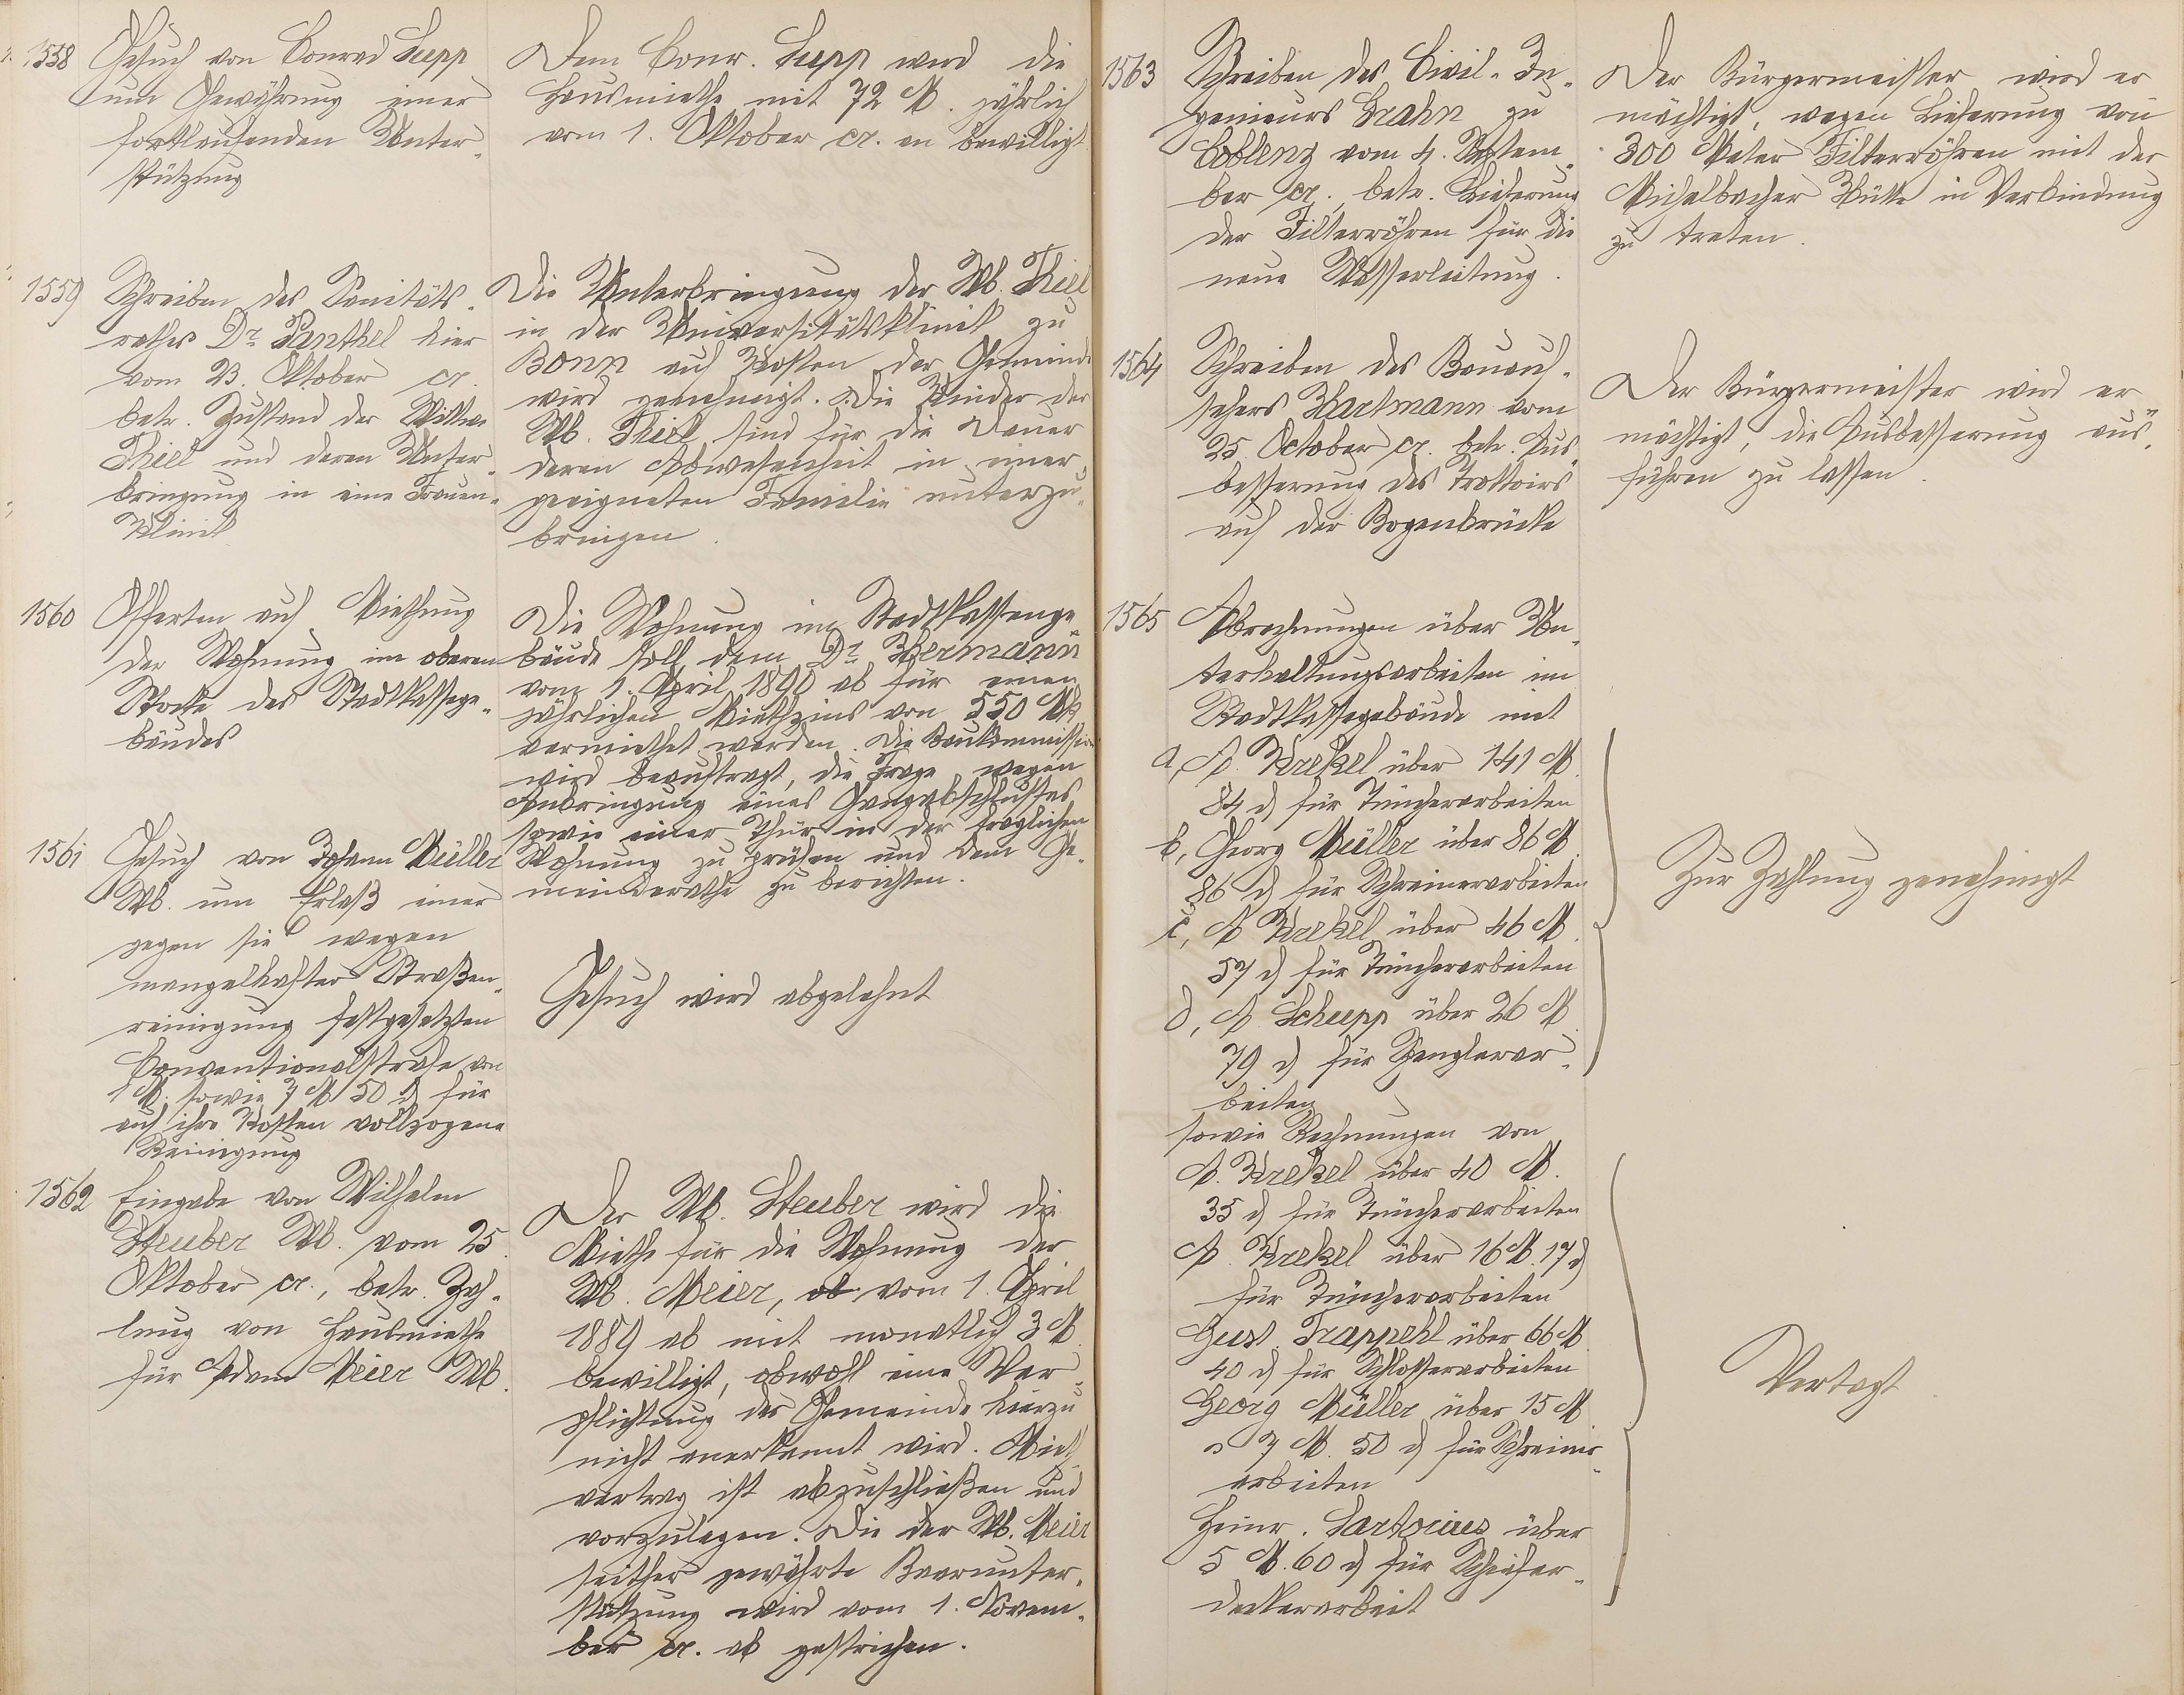 1558
Gesuch von Conrad Supp
um Gewährung einer
fortlaufenden Unter-
stützung
Dem Conr. Supp wird die
Hausmiethe mit 72 M. jährlich
vom 1. Oktober cr. an bewilligt
1559
Schreiben des Sanitäts-
rathes Dr Panthel hier
vom 23. Oktober cr.
betr. Zustand der Wittwe
Thiel und deren Unter-
bringung in eine Frauen-
klinik
Die Unterbringung der Wb. Thiel
in der Universitätsklinik zu
Bonn auf Kosten der Gemeinde
wird genehmigt. Die Kinder der
Wb. Thiel sind für die Dauer
deren Abwesenheit in einer
geeigneten Familie unterzu-
bringen.
1560
Offerten auf Miethung
der Wohnung im oberen
Stocke des Stadtkassege-
bäudes
Die Wohnung im Stadtkassenge-
bäude soll dem Dr Hermann
vom 1. April 1890 ab für einen
jährlichen Miethzins von 550 Mk
vermiethet werden. Die Baukommission
wird beauftragt, die Frage wegen
Anbringung eines Gangabschlusses
sowie einer Thür in der fraglichen
Wohnung zu prüfen und dem Ge-
meinderathe zu berichten.
1561
Gesuch von Johann Müller
Wb. um Erlaß einer
gegen sie wegen
mangelhafter Straßen-
reinigung festgesetzten
Conventionalstrafe von
1 M. sowie 7 M 50 d für
auf ihre Kosten vollzogene
Reinigung
Gesuch wird abgelehnt
1562
Eingabe von Wilhelm
Steuber Wb. vom 25.
Oktober cr., betr. Zah-
lung von Hausmiethe
für Adam Meier Wb.
Der Wb. Steuber wird die
Miethe für die Wohnung der
Wb. Meier, ab vom 1. April
1889 ab mit monatlich 3 M.
bewilligt, obwohl eine Ver-
pflichtung der Gemeinde hierzu
nicht anerkannt wird. Mieth-
vertrag ist abzuschließen und
vorzulegen. Die der Wb. Meier
seither gewährte Baarunter-
stützung wird vom 1. Novem-
ber cr. ab gestrichen.
1563
Schreiben des Civil-In-
genieurs Grahn zu
Coblenz vom 4. Septem-
ber cr., betr. Lieferung
der Filterröhren für die
neue Wasserleitung.
Der Bürgermeister wird er
mächtigt, wegen Lieferung von
300 Meter Filterröhren mit der
Michelbacher Hütte in Verbindung
zu treten.
1564
Schreiben des Bauauf-
sehers Hartmann vom
25. October cr. betr. Aus-
besserung des Trottoirs
auf der Bogenbrücke
Der Bürgermeister wird er
mächtigt, die Ausbesserung aus-
führen zu lassen.
1565
Abrechnungen über Un-
terhaltungsarbeiten im
Stadtkassegebäude mit
a, A. Krekel über 141 M.
84 d für Tüncherarbeiten
b, Georg Müller über 86 M.
86 d für Schreinerarbeiten
c, A Krekel über 46 M.
57 d für Tüncherarbeiten
d, A Schupp über 26 M.
79 d für Spenglerar-
beiten
Zur Zahlung genehmigt
sowie Rechnungen von
A. Krekel über 40 M.
35 d für Tüncherarbeiten
A. Krekel über 16 M. 17 d
für Tüncherarbeiten
Gust. Trappehl über 66 M.
40 d für Schlosserarbeiten
Georg Müller über 15 M
7 M. 50 d für Schreiner-
arbeiten
Heinr. Sartorius über
5 M. 60 d für Schiefer-
deckerarbeit
Vertagt